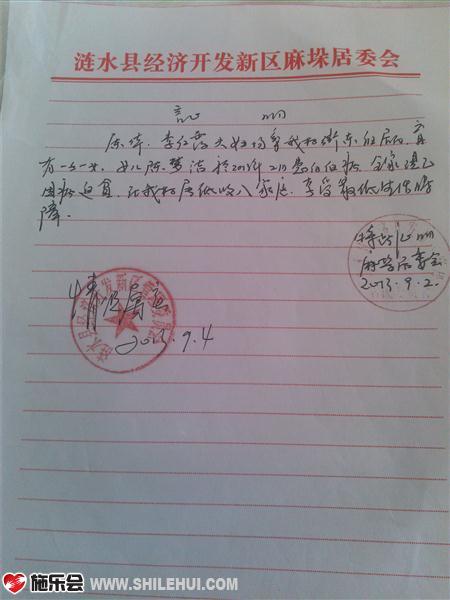 涟水县经济开发新区麻垛居委会
证 明
陈 李红霞夫妇均系我村街东组居民, 育
有一女, 女儿陈梦洁于2011年2月患白血病, 全家现已
因病返贫, 在我村属低收入家庭, 享受最低生活保
障。
特此证明
麻垛居委会
2013.9.2.
情况属实
2013.9.4
施乐会
WWW.SHILEHUI.COM